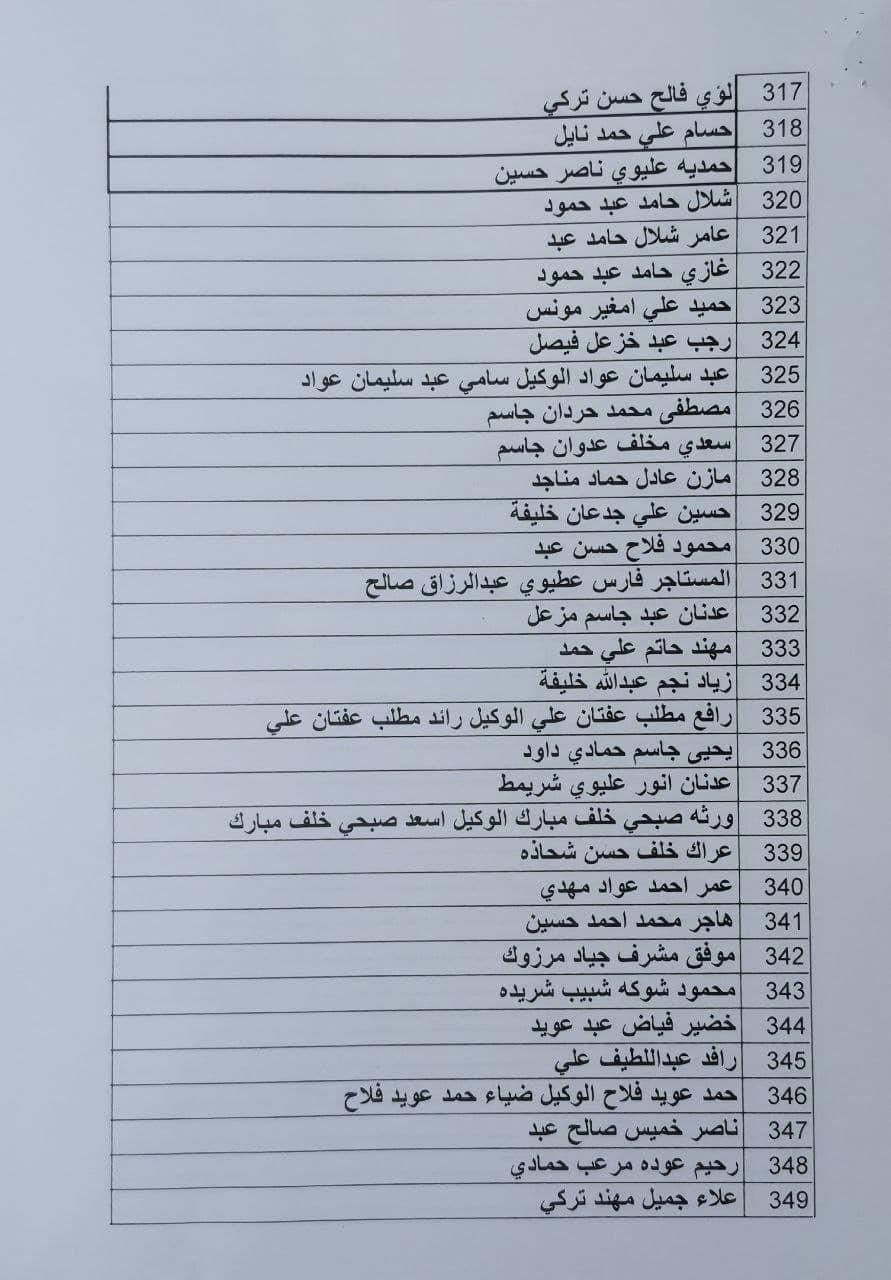 317 لؤي فالح حسن تركي
318 حسام علي حمد نايل
319 حمديه عليوي ناصر حسين
320 شلال حامد عبد حمود
321 عامر شلال حامد عبد
322 غازي حامد عبد حمود
323 حميد علي امغير مونس
324 رجب عبد خزعل فيصل
325 عبد سليمان عواد الوكيل سامي عبد سليمان عواد
326 مصطفى محمد حردان جاسم
327 سعدي مخلف عدوان جاسم
328 مازن عادل حماد مناجد
329 حسين علي جدعان خليفة
330 محمود فلاح حسن عبد
331 المستاجر فارس عطيوي عبدالرزاق صالح
332 عدنان عبد جاسم مزعل
333 مهند حاتم علي حمد
334 زياد نجم عبدالله خليفة
335 رافع مطلب عفتان علي الوكيل رائد مطلب عفتان علي
336 يحيى جاسم حمادي داود
337 عدنان انور عليوي شريمط
338 ورثه صبحي خلف مبارك الوكيل اسعد صبحي خلف مبارك
339 عراك خلف حسن شحاذه
340 عمر احمد عواد مهدي
341 هاجر محمد احمد حسين
342 موفق مشرف جياد مرزوك
343 محمود شوكه شبيب شريده
344 خضير فياض عبد عويد
345 رافد عبداللطيف علي
346 حمد عويد فلاح الوكيل ضياء حمد عويد فلاح
347 ناصر خميس صالح عبد
348 رحيم عوده مرعب حمادي
349 علاء جميل مهند تركي